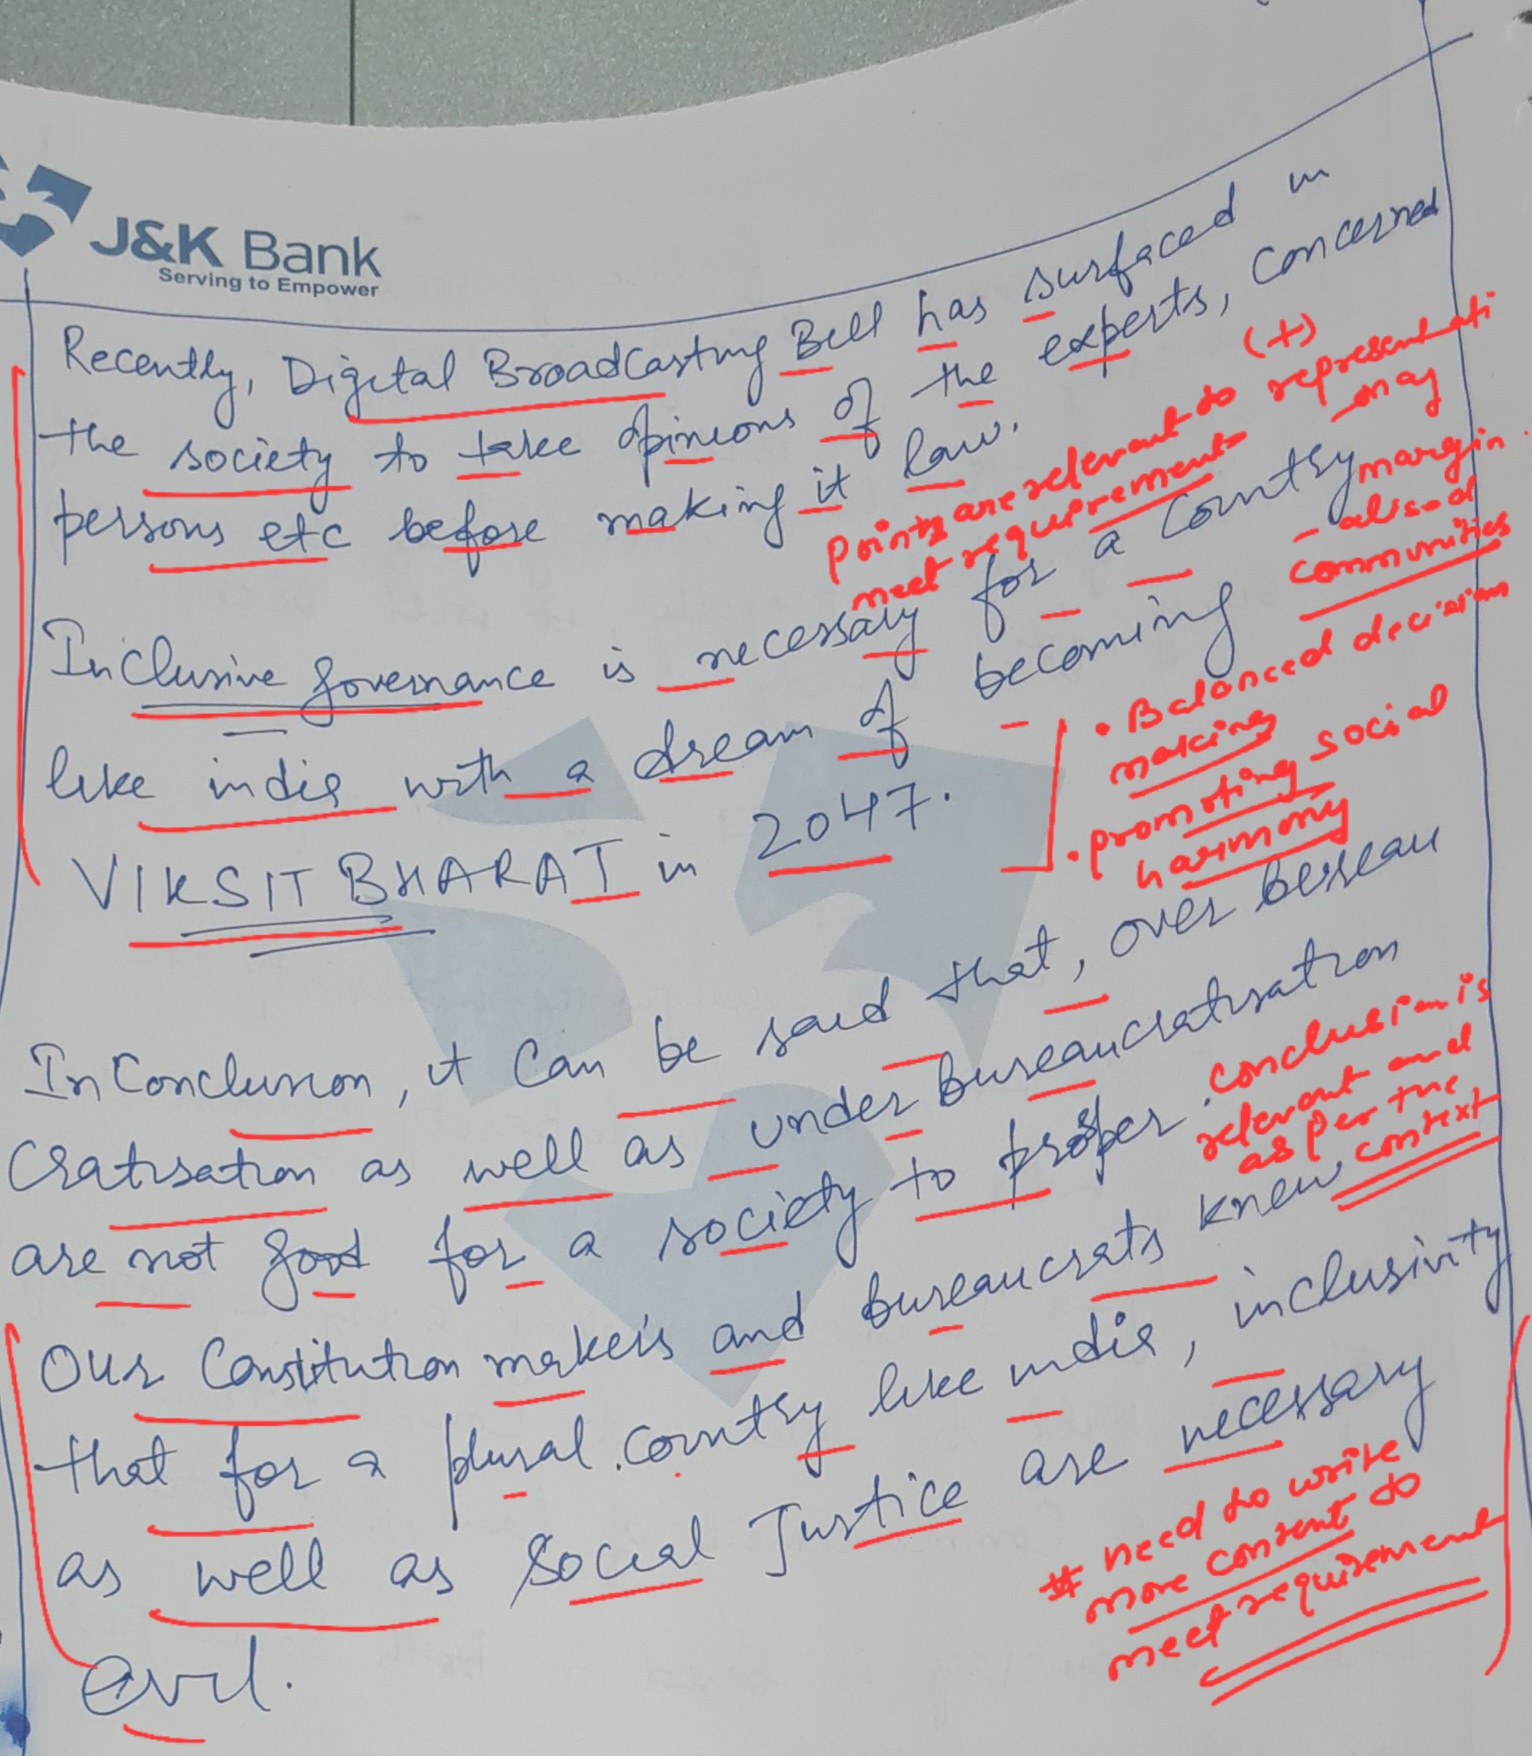 J&K Bank
Serving to Empower
Recently, Digital Broadcasting Bill has surfaced in
the society to take opinions of the experts, concerned
persons etc before making it law.
(+)
Points are relevant to representati
meet requirement
-on of
margin
-alised
communities
Inclusive governance is necessary for a country
like india with a dream of becoming
VIKSIT BHARAT in 2047.
• Balanced decision
making
• promoting social
harmony
In Conclusion, it can be said that, over bureau
cratisation as well as under bureaucratisation
are not good for a society to prosper.
conclusion is
relevant and
as per the
context
Our Constitution makers and bureaucrats knew
that for a plural country like india, inclusivity
as well as Social Justice are necessary
evil.
# need to write
more content to
meet requirement